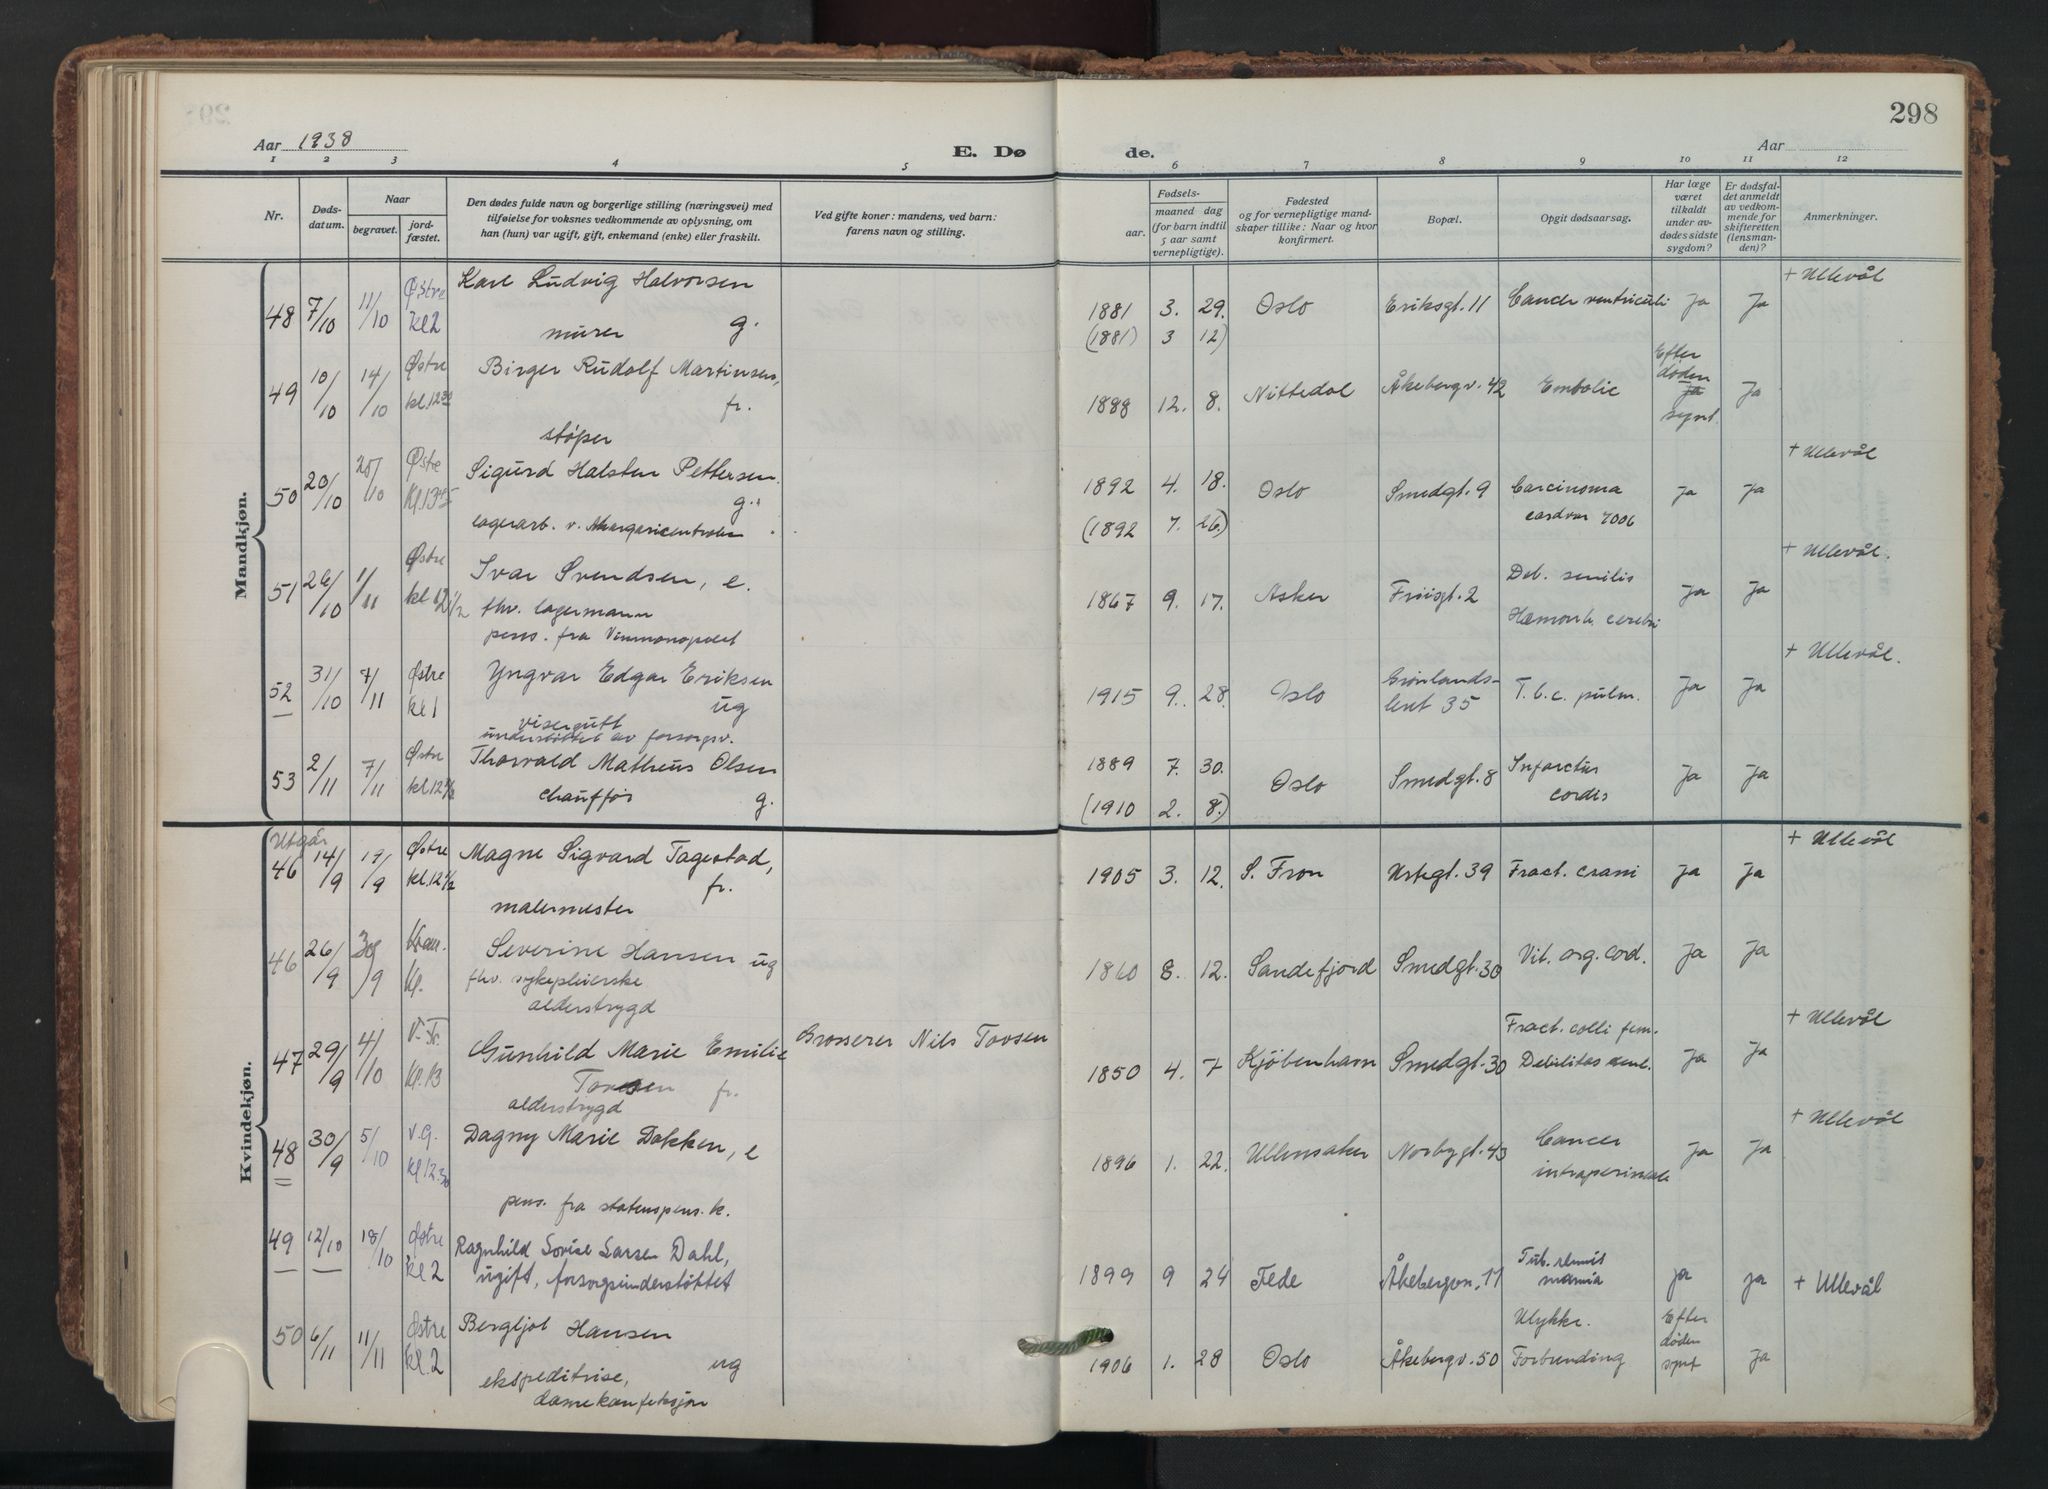 298
Aar 1938
E. Dø
de.
Aar
1 2 3 4 5 6 7 8 9 10 11 12
Nr.
Døds-
datum.
Naar
begravet.
jord-
fæstet.
Den dødes fulde navn og borgerlige stilling (næringsvei) med
tilføielse for voksnes vedkommende av oplysning, om
han (hun) var ugift, gift, enkemand (enke) eller fraskilt.
Ved gifte koner: mandens, ved barn:
farens navn og stilling.
Fødsels-
aar.
maaned dag
(for barn indtil
5 aar samt
vernepligtige).
Fødested
og for vernepligtige mand-
skaper tillike: Naar og hvor
konfirmert.
Bopæl.
Opgit dødsaarsag.
Har læge
været
tilkaldt
under av-
dødes sidste
sygdom?
Er dødsfal-
det anmeldt
av vedkom-
mende for
skifteretten
(lensman-
den)?
Anmerkninger.
Mandkjøn.
48 7/10 11/10 Østre kl 2 Karl Ludvig Halvorsen
murer g.
1881 3. 29. Oslo Eriksgt. 11 Cancer ventriculi Ja Ja + Ullevål
(1881) 3 12)
49 10/10 14/10 Østre kl. 12 30 Birger Rudolf Martinsen,
fr.
støper
1888 12. 8. Nittedal Åkebergv. 42 Embolie Efter døden synt Ja
50 20/10 25/10 Østre Kl. 13 Sigurd Halsten Pettersen
g.
lagerarb. v. Margarincentralen
1892 4. 18. Oslo Smedgt. 9 Carcinoma Ja Ja + Ullevål
(1892 7. 26.)
51 26/10 1/11 Østre kl. 12 1/2 Ivar Svendsen, e.
fhv. lagermann
pens. fra Vinmonopolet
1867 9. 17. Asker Friisgt. 2 Deb. senilis
Hæmorh. cerebri Ja Ja + Ullevål.
52 31/10 7/11 Østre kl 1 Yngvar Edgar Eriksen
ug
visergutt
understøttet av forsorgsv.
1915 9. 28. Oslo Grønlands-
leret 35 T.b.c. pulm. Ja Ja + Ullevål.
53 2/11 7/11 Østre kl. 12 1/2 Thorvald Matheus Olsen
chauffør g.
1889 7. 30. Oslo Smedgt. 8 Infarctus
cordis Ja Ja
(1910 2. 8.)
Kvindekjøn.
Utgår
46 14/9 19/9 Østre kl. 12 1/2 Magne Sigvard Tagestad,
fr.
malermester
1905 3. 12. S. Fron Urtegt. 39 Fract. crani Ja Ja + Ullevål
46 26/9 30/9 Krem. Kp. Severine Hansen ug
fhv. sykepleierske
alderstrygd
1860 8. 12. Sandefjord Smedgt. 30 Vit. org. cord. Ja Ja
47 29/9 4/10 V. Gr. Kl. 13 Gunhild Marie Emilie
Torsen fr.
alderstrygd
Grosserer Nils Torsen
1850 4. 7 Kjøbenhavn Smedgt. 30 Fract. colli fem.
Debilitas senil. Ja Ja + Ullevål
48 30/9 5/10 V.G. Kl 12.30 Dagny Marie Dokken, e
pens. fra statenspens.k.
1896 1. 22. Ullensaker Norbygt. 43 Cancer Ja Ja + Ullevål
49 12/10 18/10 Østre kl 2 Ragnhild Lovise Larsen Dahl,
ugift, forsorgsunderstøttet
1899 9 24 Fede Åkebergvn. 11 Tub. Ja Ja + Ullevål
50 6/11 11/11 Østre kl. 2 Bergljot Hansen
ug
ekspeditrise,
damekonfeksjon
1906 1. 28 Oslo Åkebergv. 50 Ulykke.
Forbrending Efter døden synt Ja